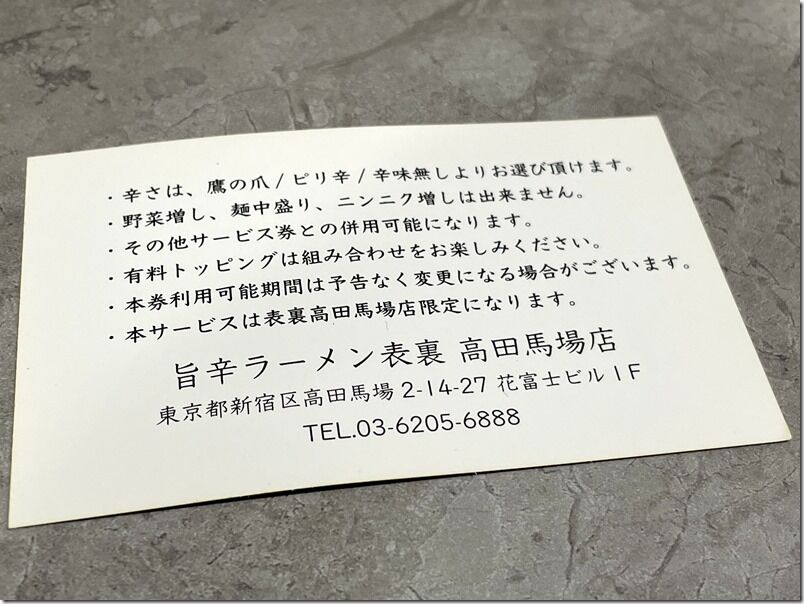 ・辛さは、鷹の爪/ピリ辛/辛味無しよりお選び頂けます。
・野菜増し、麺中盛り、ニンニク増しは出来ません。
・その他サービス券との併用可能になります。
・有料トッピングは組み合わせをお楽しみください。
・本券利用可能期間は予告なく変更になる場合がございます。
・本サービスは表裏高田馬場店限定になります。
旨辛ラーメン表裏 高田馬場店
東京都新宿区高田馬場 2-14-27 花富士ビル1F
TEL.03-6205-6888